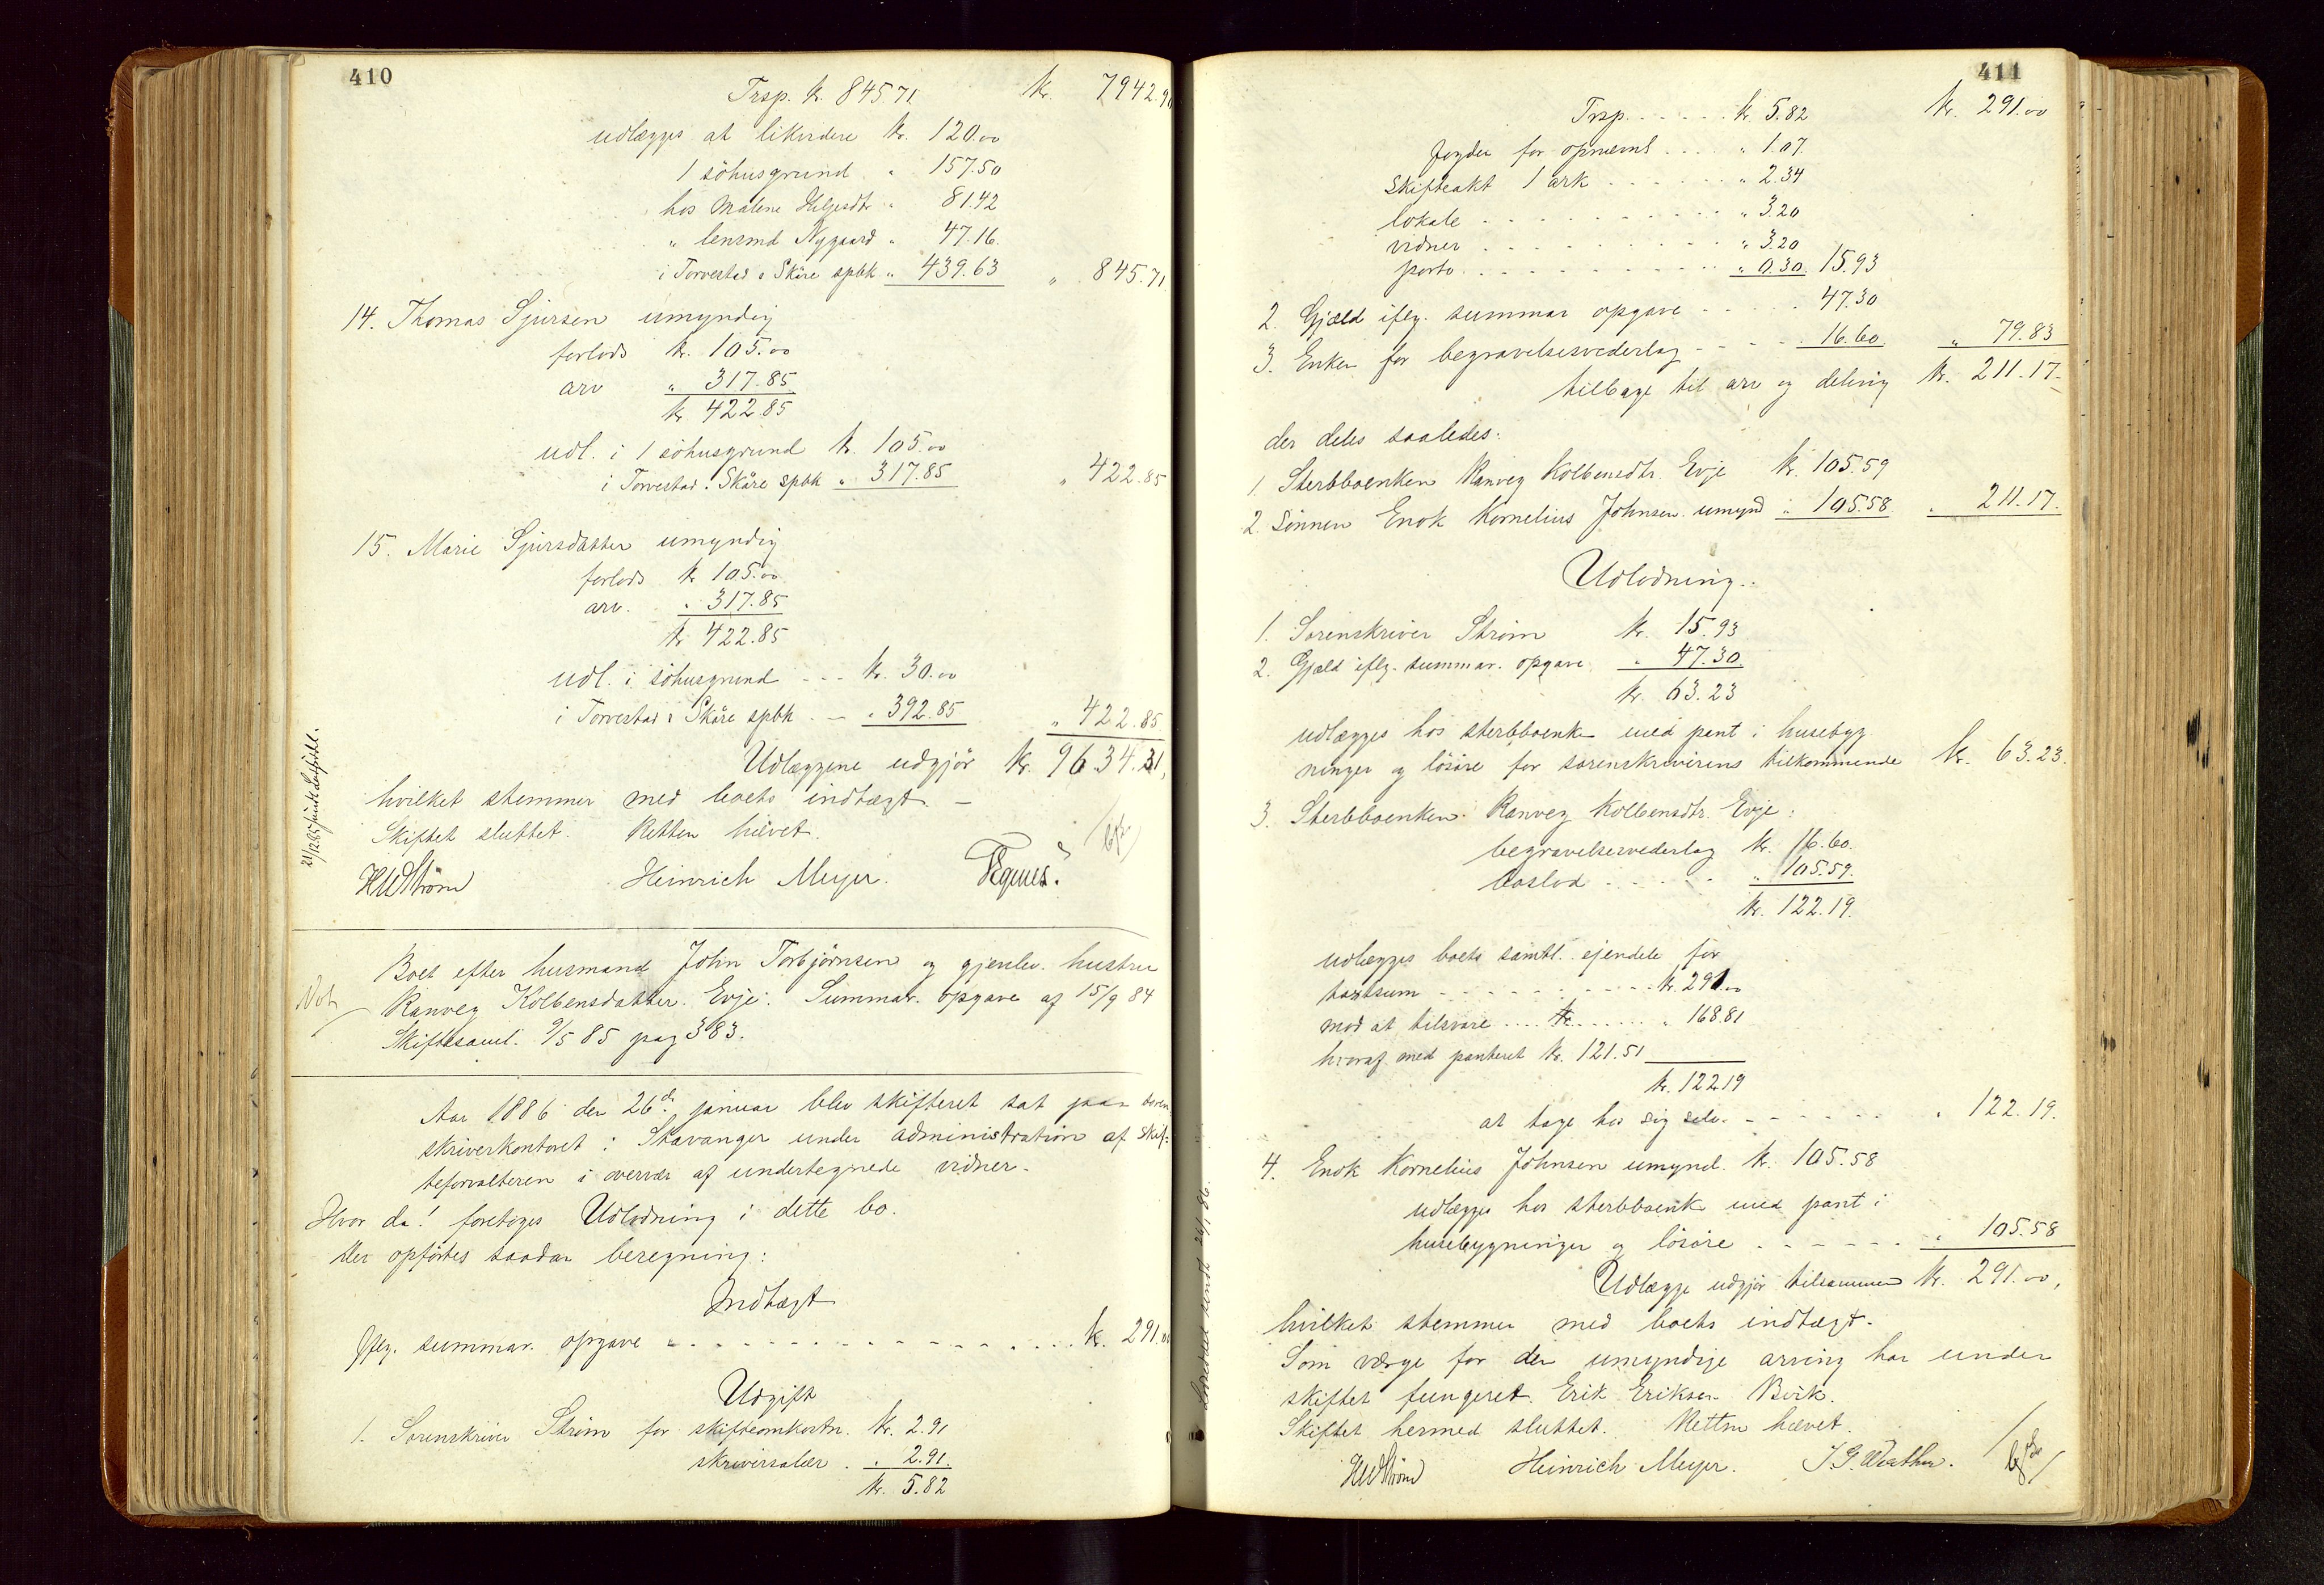 410
Trsp. kr. 845.71 kr. 7942.91
udlægges at likvidere kr. 120.00
1 söhusgrund " 157.50
hos Malene Helgesdtr " 81.42
" lensmd Nygaard " 47.16.
i Torvestad & Skåre spbk " 439.63 " 845.71
14. Thomas Sjursen umyndig
forlods kr. 105.00
arv " 317.85
kr 422.85
udl. i 1 söhusgrund kr. 105.00
i Torvestad & Skåre spbk " 317.85 " 422.85
15. Marie Sjursdatter umyndig
forlods kr 105.00
arv. " 317.85
kr 422.85
udl. i söhusgrund - - - kr. 30.00
i Torvestad & Skåre spbk. - " 392.85 " 422.85
Udlæggene udgjör kr. 9634.31,
hvilket stemmer med boets indtægt. -
Skiftet sluttet. Retten hævet.
HWStröm Heinrich Meyer.
Boet efter husmand John Torbjörnsen og gjenlev. hustru
Ranveg Kolbensdatter Evje. Summar. opgave af 15/9 84
Skiftesaml. 9/5 85 pag 383.
Aar 1886 den 26de januar blev skifteret sat paa soren-
skriverkontoret i Stavanger under administration af skif-
teforvalteren i overvær af undertegnede vidner.
Hvor da! foretoges Udlodning i dette bo.
Der opförtes saadan beregning:
Indtægt
Iflg. summar. opgave - - - - - - - - - - kr. 291.00
Udgift
1. Sorenskriver Ström for skifteomkostn. kr. 2.91
skriversalær . " 2.91.
kr. 5.82
411
Trsp. - - - - - kr. 5.82 kr. 291.00
Fogden for opnævnt - - - " 1.07.
Skifteakt 1 ark - - - - - - " 2.34
lokale - - - - - - - - - - " 3.20
vidner - - - - - - - - - - " 3.20
porto - - - - - - - - - - " 0.30. 15.93
2. Gjæld iflg. summar opgave - - - - - 47.30
3. Enken for begravelsesvederlag - - - - 16.60. " 79.83
tilbage til arv og deling kr. 211.17.
der deles saaledes:
1. Sterbboenken Ranveg Kolbensdtr. Evje kr. 105.59
2. Sönnen Enok Kornelius Johnsen umynd " 105.58 " 211.17.
Udlodning.
1. Sorenskriver Ström kr. 15.93
2. Gjæld iflg. summar. opgave " 47.30
kr. 63.23
udlægges hos sterbboenk med pant i husebyg
ninger og lösöre for sorenskriverens tilkommende kr. 63.23.
3. Sterbboenken Ranveg Kolbensdtr. Evje:
begravelsesvederlag kr. 16.60.
boslod - - - - - " 105.59.
kr. 122.19.
udlægges boets samtl. ejendele for
taxtsum - - - - - - - - - kr. 291.00
mod at tilsvare - - - - kr. - - - - " 168.81
hvoraf med panteret kr. 121.51
kr. 122.19
at tage hos sig selv. - - - - - - " 122.19.
4. Enok Kornelius Johnsen umynd. kr. 105.58
udlægges hos sterbboenk med pant i
husebygninger og lösöre - - - - - - " 105.58
Udlægge udgjör tilsammen kr. 291.00,
hvilket stemmer med boets indtægt.
Som værge for den umyndige arving har under
skiftet fungeret Erik Eriksen
Skiftet hermed sluttet. Retten hævet.
HWStröm Heinrich Meyer.